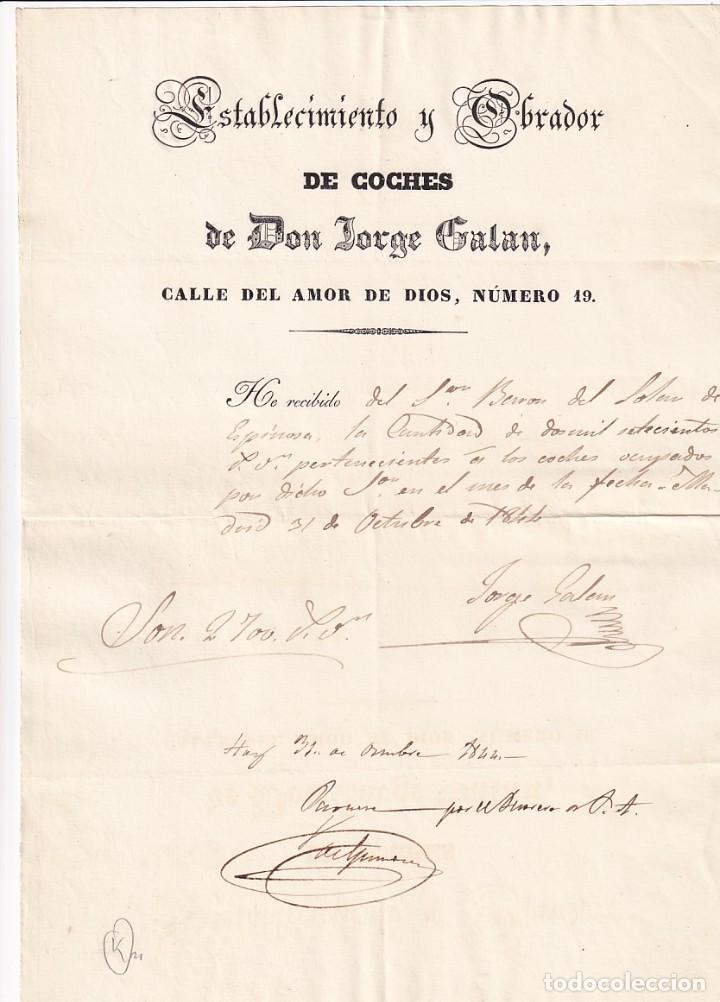 Establecimiento y Obrador
DE COCHES
de Don Jorge Galan,
CALLE DEL AMOR DE DIOS, NÚMERO 19.
He recibido del Sor. Baron del Solar de
Espinosa, la Cantidad de dosmil setecientos
rs. vn. pertenecientes á los coches ocupados
por dicho Sor. en el mes de la fecha. Ma-
drid 31 de Octubre de 1844
Jorge Galan
Son. 2700. rs. vn.
31. de 1844.
por el
K 21
todocoleccion
todocoleccion.net